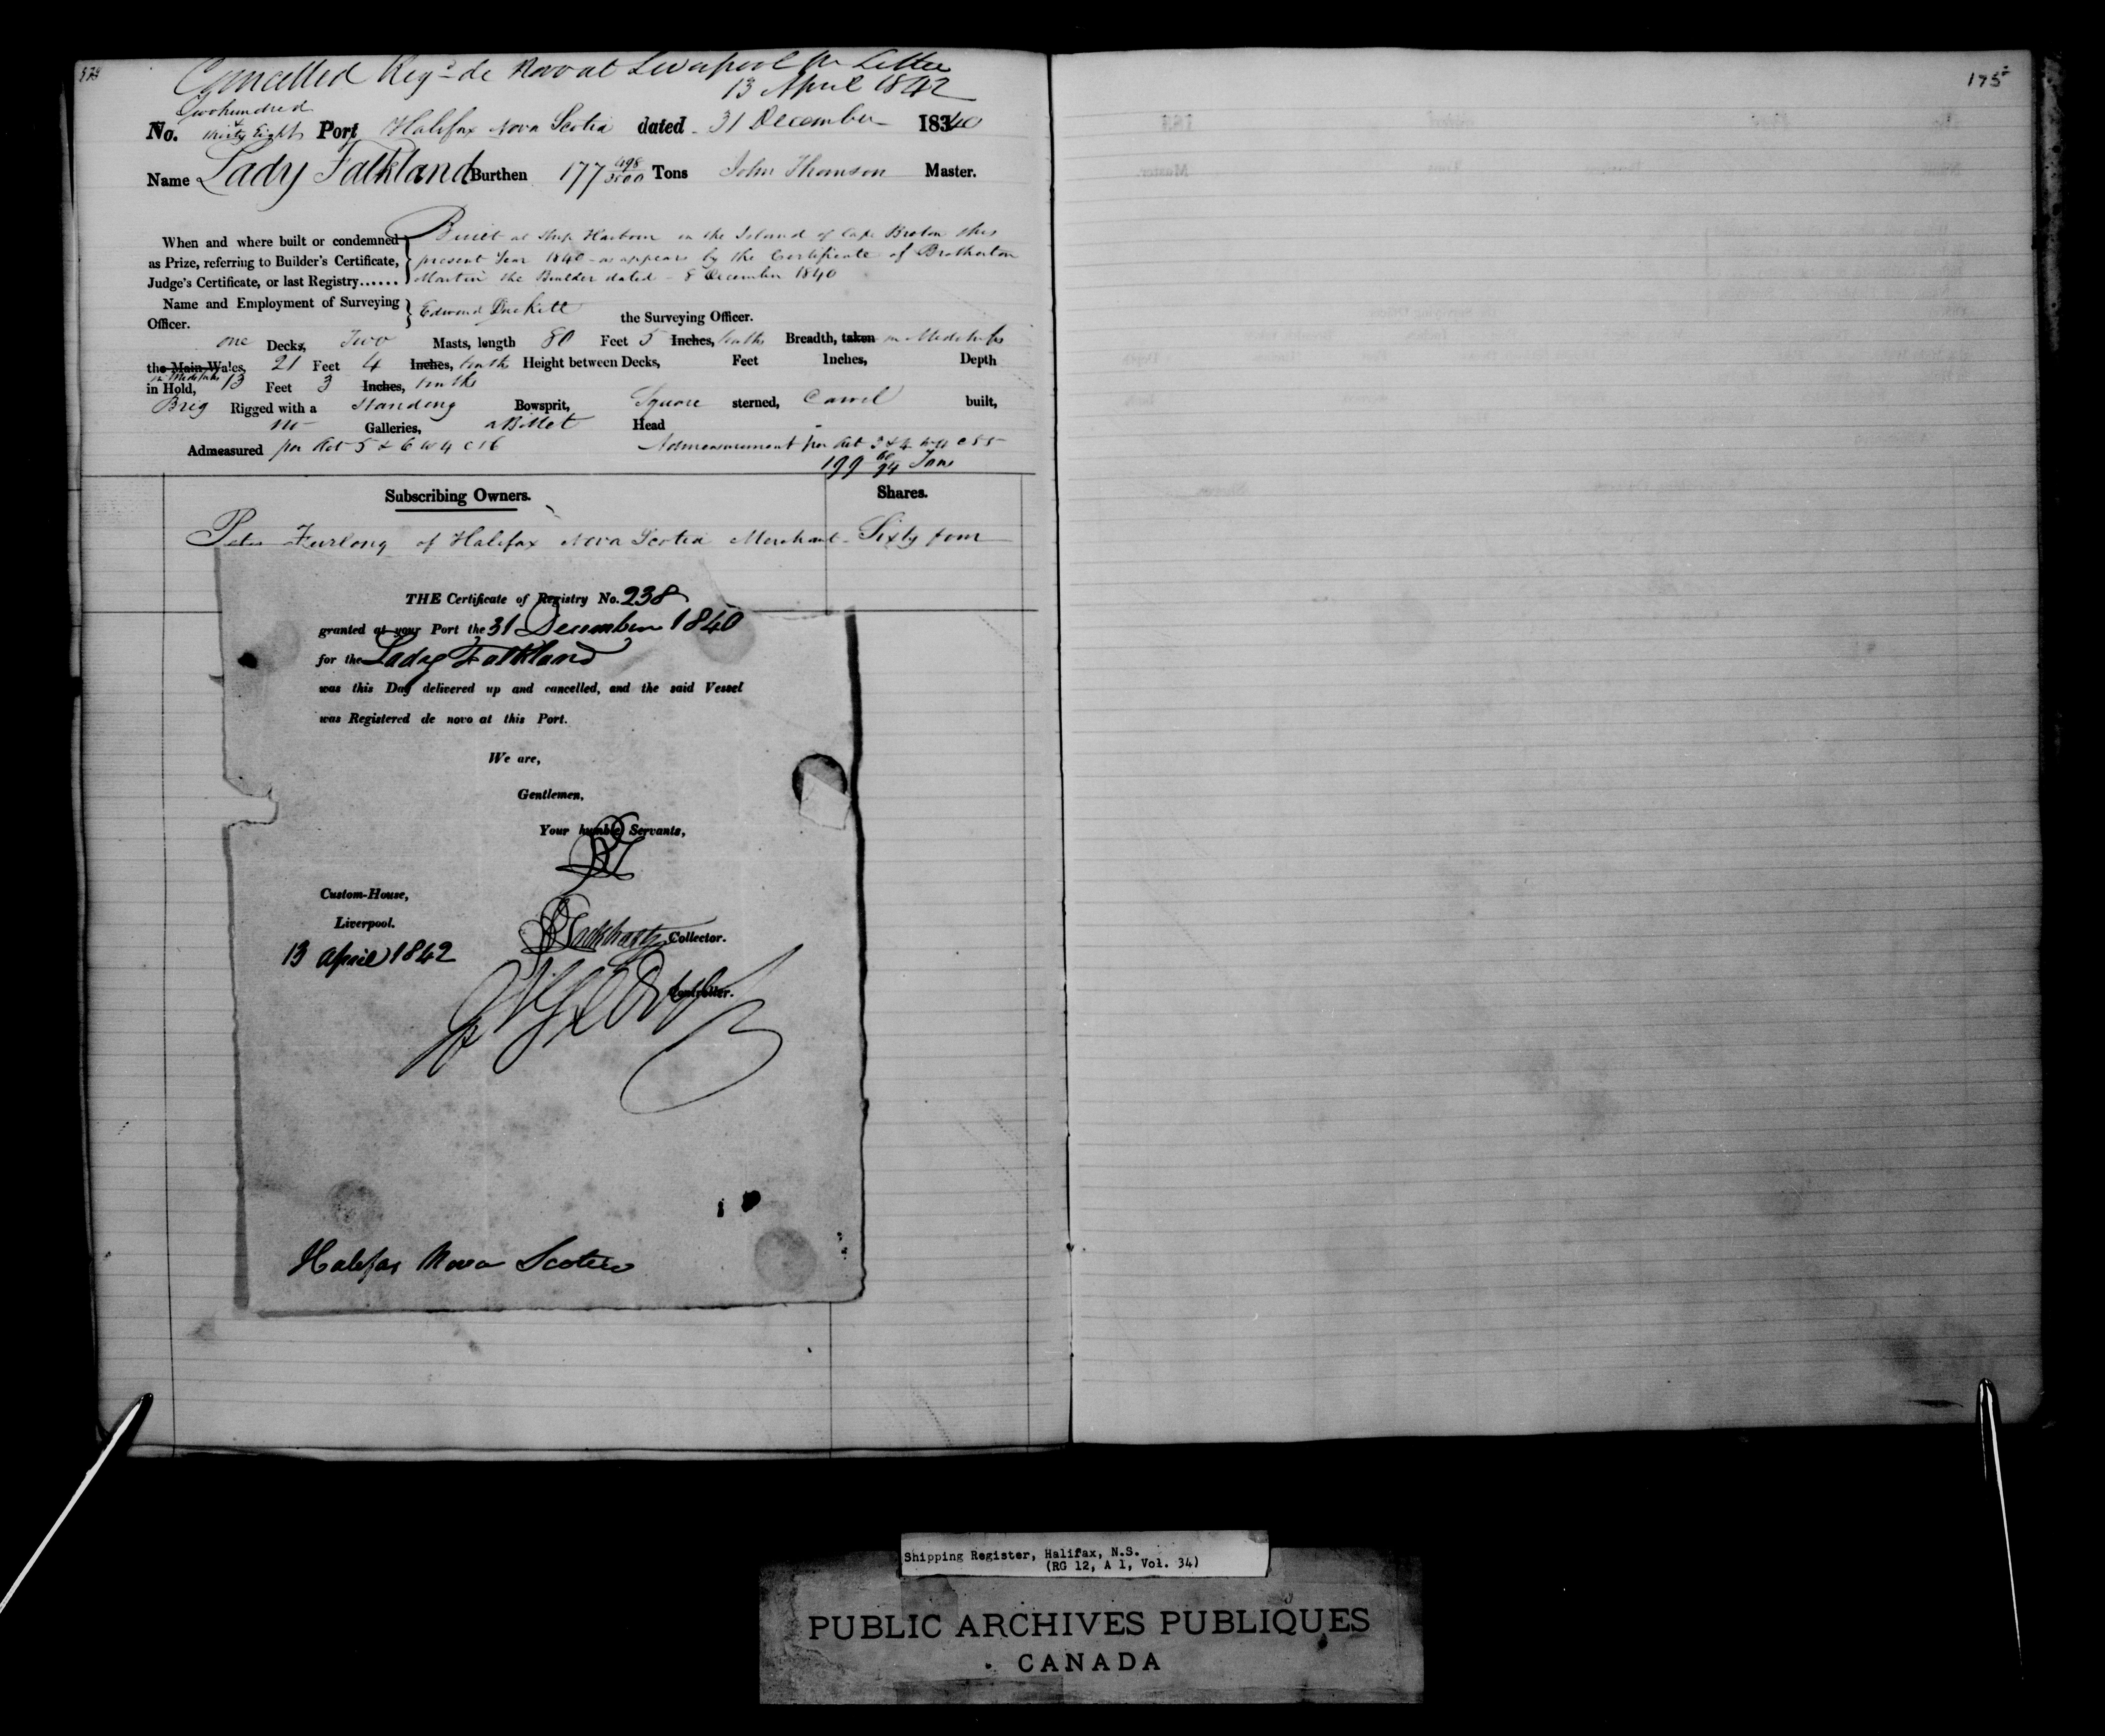 Cancelled Reg.d de Novo at Liverpool Pr Letter
13 April 1842
175
Two hundred
&
No. thirty Eight Port Halifax Nova Scotia dated 31 December 1840
Name Lady Falkland Burthen 177 498/3500 Tons John Thomson Master.
When and where built or condemned Built at Ship Harbour in the Island of Cape Breton this
as Prize, referring to Builder's Certificate, present Year 1840 as appears by the Certificate of Brotherton
Judge's Certificate, or last Registry...... Martin the Builder dated 8 December 1840
Name and Employment of Surveying
Officer. Edward Duckett the Surveying Officer.
one Decks, Two Masts, length 80 Feet 5 Inches, tenths Breadth, taken in Midships
the Main Wales, 21 Feet 4 Inches, tenths Height between Decks, Feet Inches, Depth
in Midships
in Hold, 13 Feet 3 Inches, tenths
Brig Rigged with a Standing Bowsprit, Square sterned, Carvel built,
no Galleries, a Billet Head
Admeasured per Act 5 & 6 W 4 C 56 Admeasurement per Act 3 & 4 W 4 C 55
199 60/94 Tons
Subscribing Owners. Shares.
Peter Furlong of Halifax Nova Scotia Merchant Sixty four
THE Certificate of Registry No. 238
granted at your Port the 31 December 1840
for the Lady Falkland
was this Day delivered up and cancelled, and the said Vessel
was Registered de novo at this Port.
We are,
Gentlemen,
Your humble Servants,
Custom-House,
Liverpool.
Collector.
13 April 1842
Controller.
Halifax Nova Scotia
Shipping Register, Halifax, N.S.
(RG 12, A 1, Vol. 34)
PUBLIC ARCHIVES PUBLIQUES
CANADA